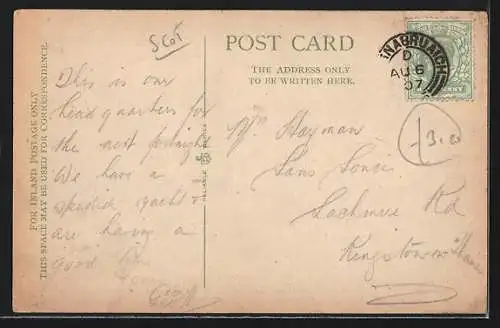 Scot
POST CARD
THE ADDRESS ONLY
TO BE WRITTEN HERE.
FOR INLAND POSTAGE ONLY
THIS SPACE MAY BE USED FOR CORRESPONDENCE.
This is our
head quarters for
the next fortnight
We have a
splendid yacht &
are having a
good
RELIABLE
SERIES
NABRUAICH
D
AU 6
07
Hayman
Sans Souci
Rd
Kingstown